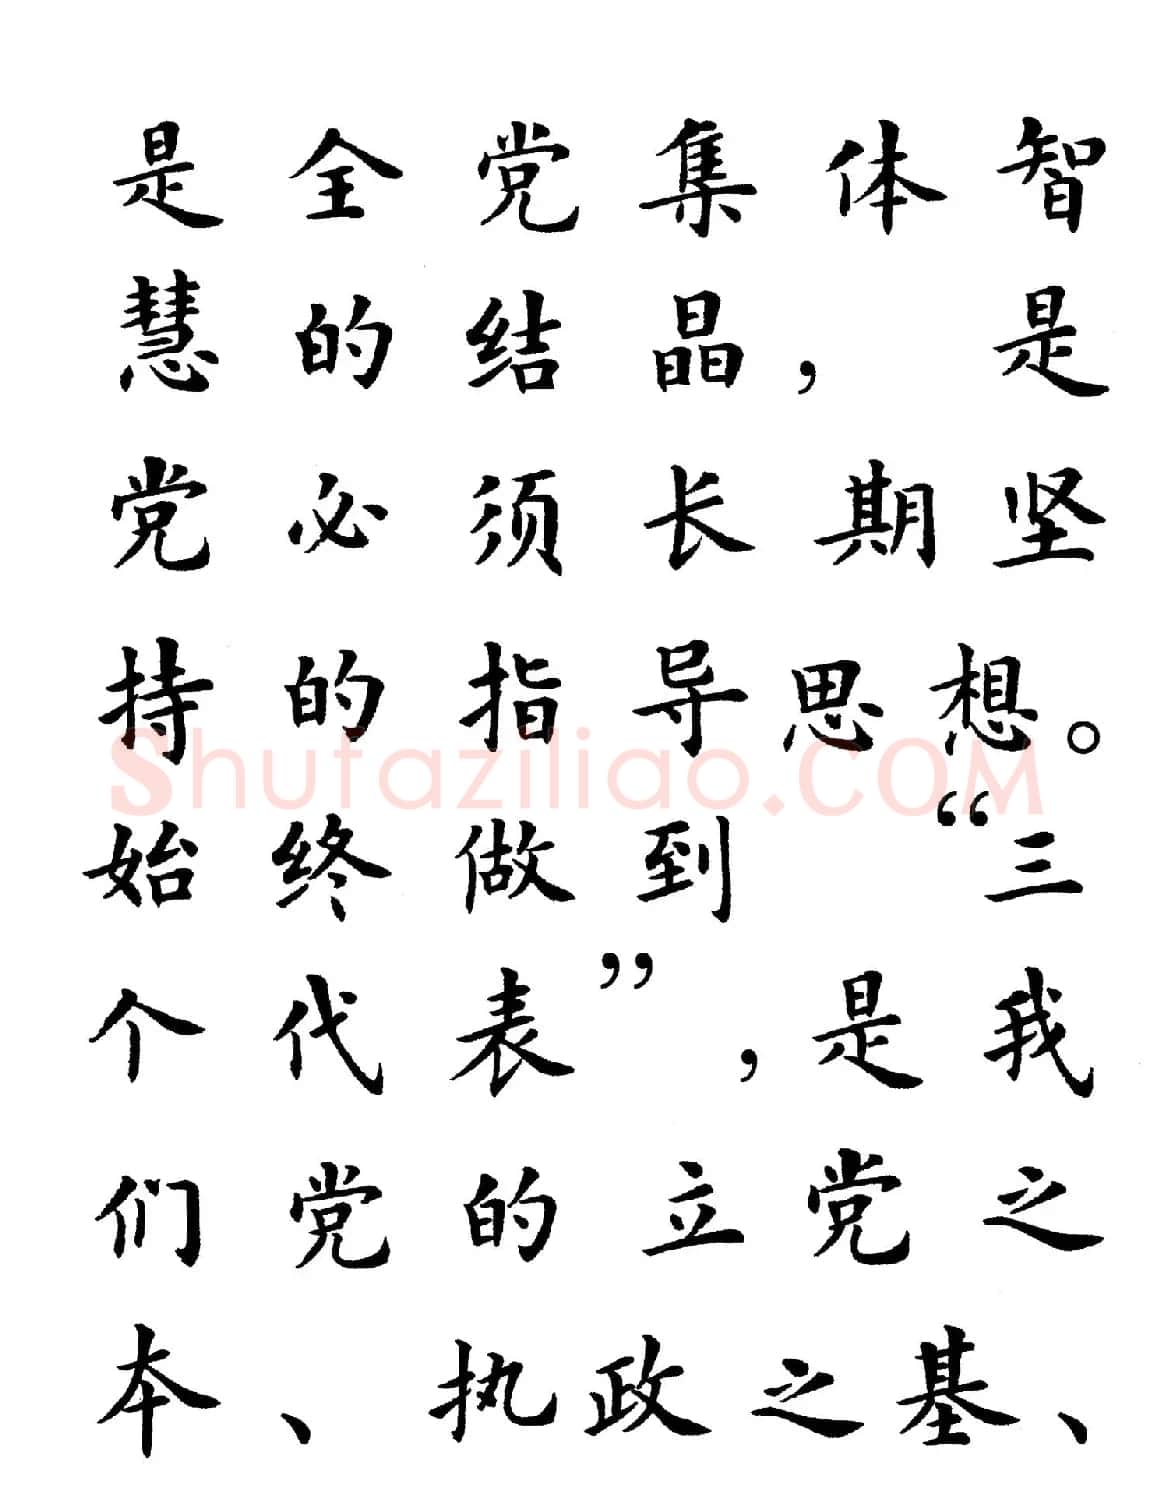 是全党集体智
慧的结晶，是
党必须长期坚
持的指导思想。
Shufaziliao.COM
始终做到“三
个代表”，是我
们党的立党之
本、执政之基、